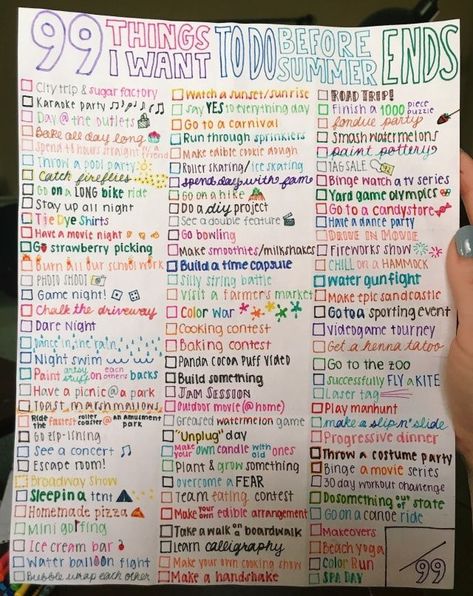 99 THINGS I WANT TO DO BEFORE SUMMER ENDS
City trip & sugar factory
Karaoke party
Day @ the outlets
Bake all day long
Spend 48 hours straight w/ a friend
Throw a pool party
Catch fireflies
Go on a LONG bike ride
Stay up all night
Tie Dye Shirts
Have a movie night
Go strawberry picking
Burn all our school work
PHOTO SHOOT
Game night!
Chalk the driveway
Dare Night
Dance in the rain
Night swim
Paint artsy stuff on each others backs
Have a picnic @ a park
Toast marshmallows
Ride the fastest roller coaster @ an amusment park
Go zip-lining
See a concert
Escape room!
Broadway Show
Sleep in a tent
Homemade pizza
Mini golfing
Ice cream bar
Water balloon fight
Bubble wrap each other
Watch a sunset/sunrise
Say YES to everything day
Go to a carnival
Run through sprinklers
Make edible cookie dough
Roller skating/ice skating
Spend day with fam
Go on a hike
Do a diy project
See a double feature
Go bowling
Make smoothies/milkshakes
Build a time capsule
Silly string battle
Visit a farmer's market
Color War
Cooking contest
Baking contest
Panda cocoa puff video
Build something
Jam Session
Outdoor movie (@ home)
Greased watermelon game
"Unplug" day
Make your own candle with old ones
Plant & grow something
overcome a FEAR
Team eating contest
Make your own edible arrangement
Take a walk on a boardwalk
Learn calligraphy
Make your own cooking show
Make a handshake
ROAD TRIP!
Finish a 1000 piece puzzle
fondue party
Smash watermelons
paint pottery
TAG SALE
Binge watch a tv series
Yard game olympics
Go to a candystore
Have a dance party
DRIVE IN MOVIE
Fireworks show
CHILL on a HAMMOCK
Water gun fight
Make epic sandcastle
Go to a sporting event
Videogame tourney
Get a henna tatoo
Go to the zoo
successfully FLY a KITE
Laser tag
Play manhunt
make a slip n' slide
Progressive dinner
Throw a costume party
Binge a movie series
30 day workout challenge
Do something out of state
Go on a canoe ride
Makeovers
Beach yoga
Color Run
SPA DAY
/99